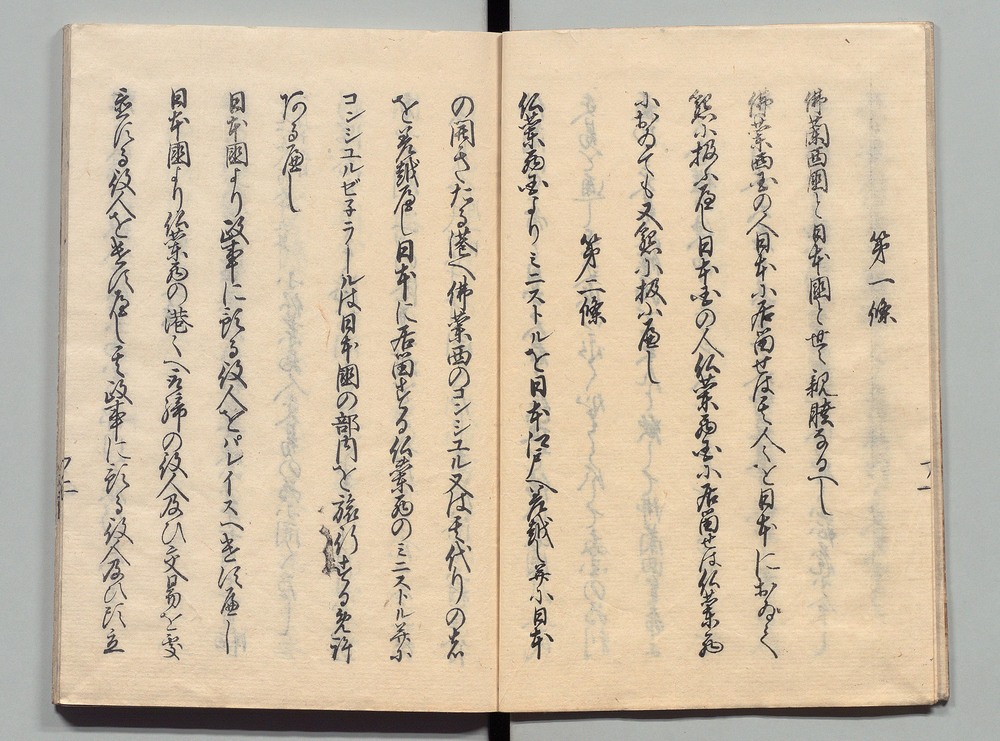 第一條
佛蘭西國と日本國と世々親睦なるへし
佛蘭西國の人日本に居留せは其人々を日本において
懇に扱ふへし日本國の人仏蘭西国に居留せは仏蘭西
におゐても又懇に扱ふへし
第二條
仏蘭西国よりミニストルを日本江戸へ差越し并に日本
の開きたる港へ佛蘭西のコンシユル又は其代りの者
を差越へし日本に居留する仏蘭西のミニストル并に
コンシユルゼ子ラールは日本國の部内を旅行する免許
あるへし
日本國より政事に預る役人をパレイスへ差遣へし
日本國より仏蘭西の港々へ取締の役人及ひ交易を処
置する役人を差遣へし其政事に預る役人及ひ頭立